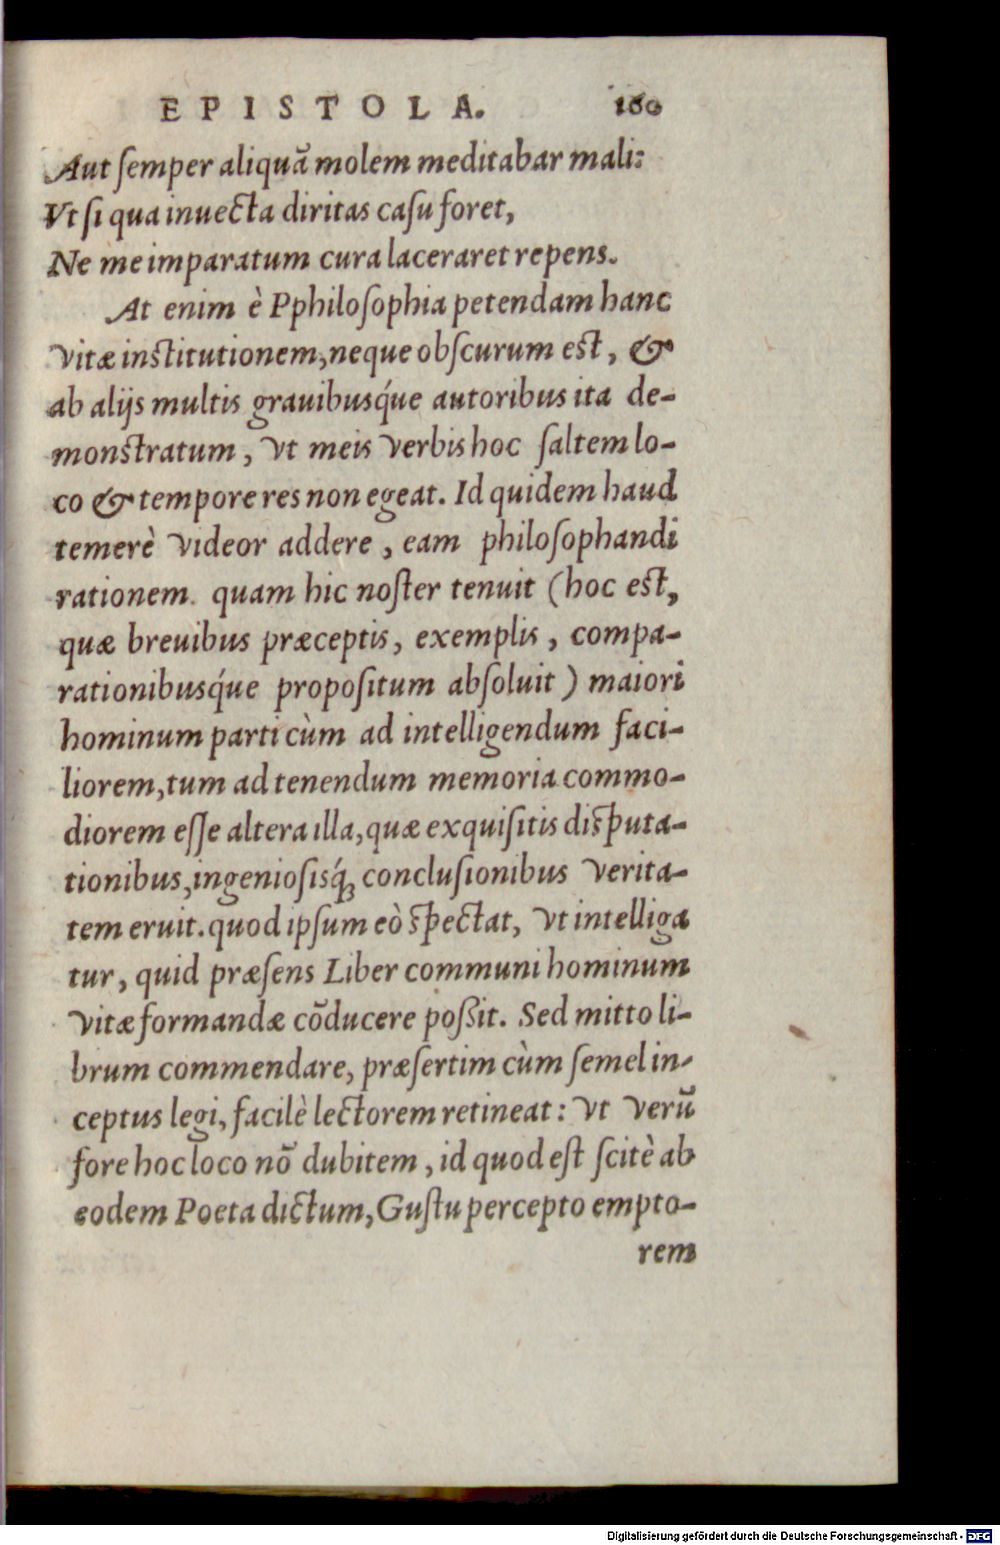 EPISTOLA. 160
Aut semper aliquā molem meditabar mali:
Vt si qua inuecta diritas casu foret,
Ne me imparatum cura laceraret repens.
At enim è Pphilosophia petendam hanc
vitæ institutionem, neque obscurum est, &
ab alijs multis grauibusq́ue autoribus ita de-
monstratum, vt meis verbis hoc saltem lo-
co & tempore res non egeat. Id quidem haud
temerè videor addere, eam philosophandi
rationem quam hic noster tenuit (hoc est,
quæ breuibus præceptis, exemplis, compa-
rationibusq́ue propositum absoluit) maiori
hominum parti cùm ad intelligendum faci-
liorem, tum ad tenendum memoria commo-
diorem esse altera illa, quæ exquisitis disputa-
tionibus, ingeniosisq́; conclusionibus verita-
tem eruit. quod ipsum eò spectat, vt intelliga
tur, quid præsens Liber communi hominum
vitæ formandæ cōducere possit. Sed mitto li-
brum commendare, præsertim cùm semel in-
ceptus legi, facilè lectorem retineat: vt verū
fore hoc loco nō dubitem, id quod est scitè ab
eodem Poeta dictum, Gustu percepto empto-
rem
Digitalisierung gefördert durch die Deutsche Forschungsgemeinschaft - DFG